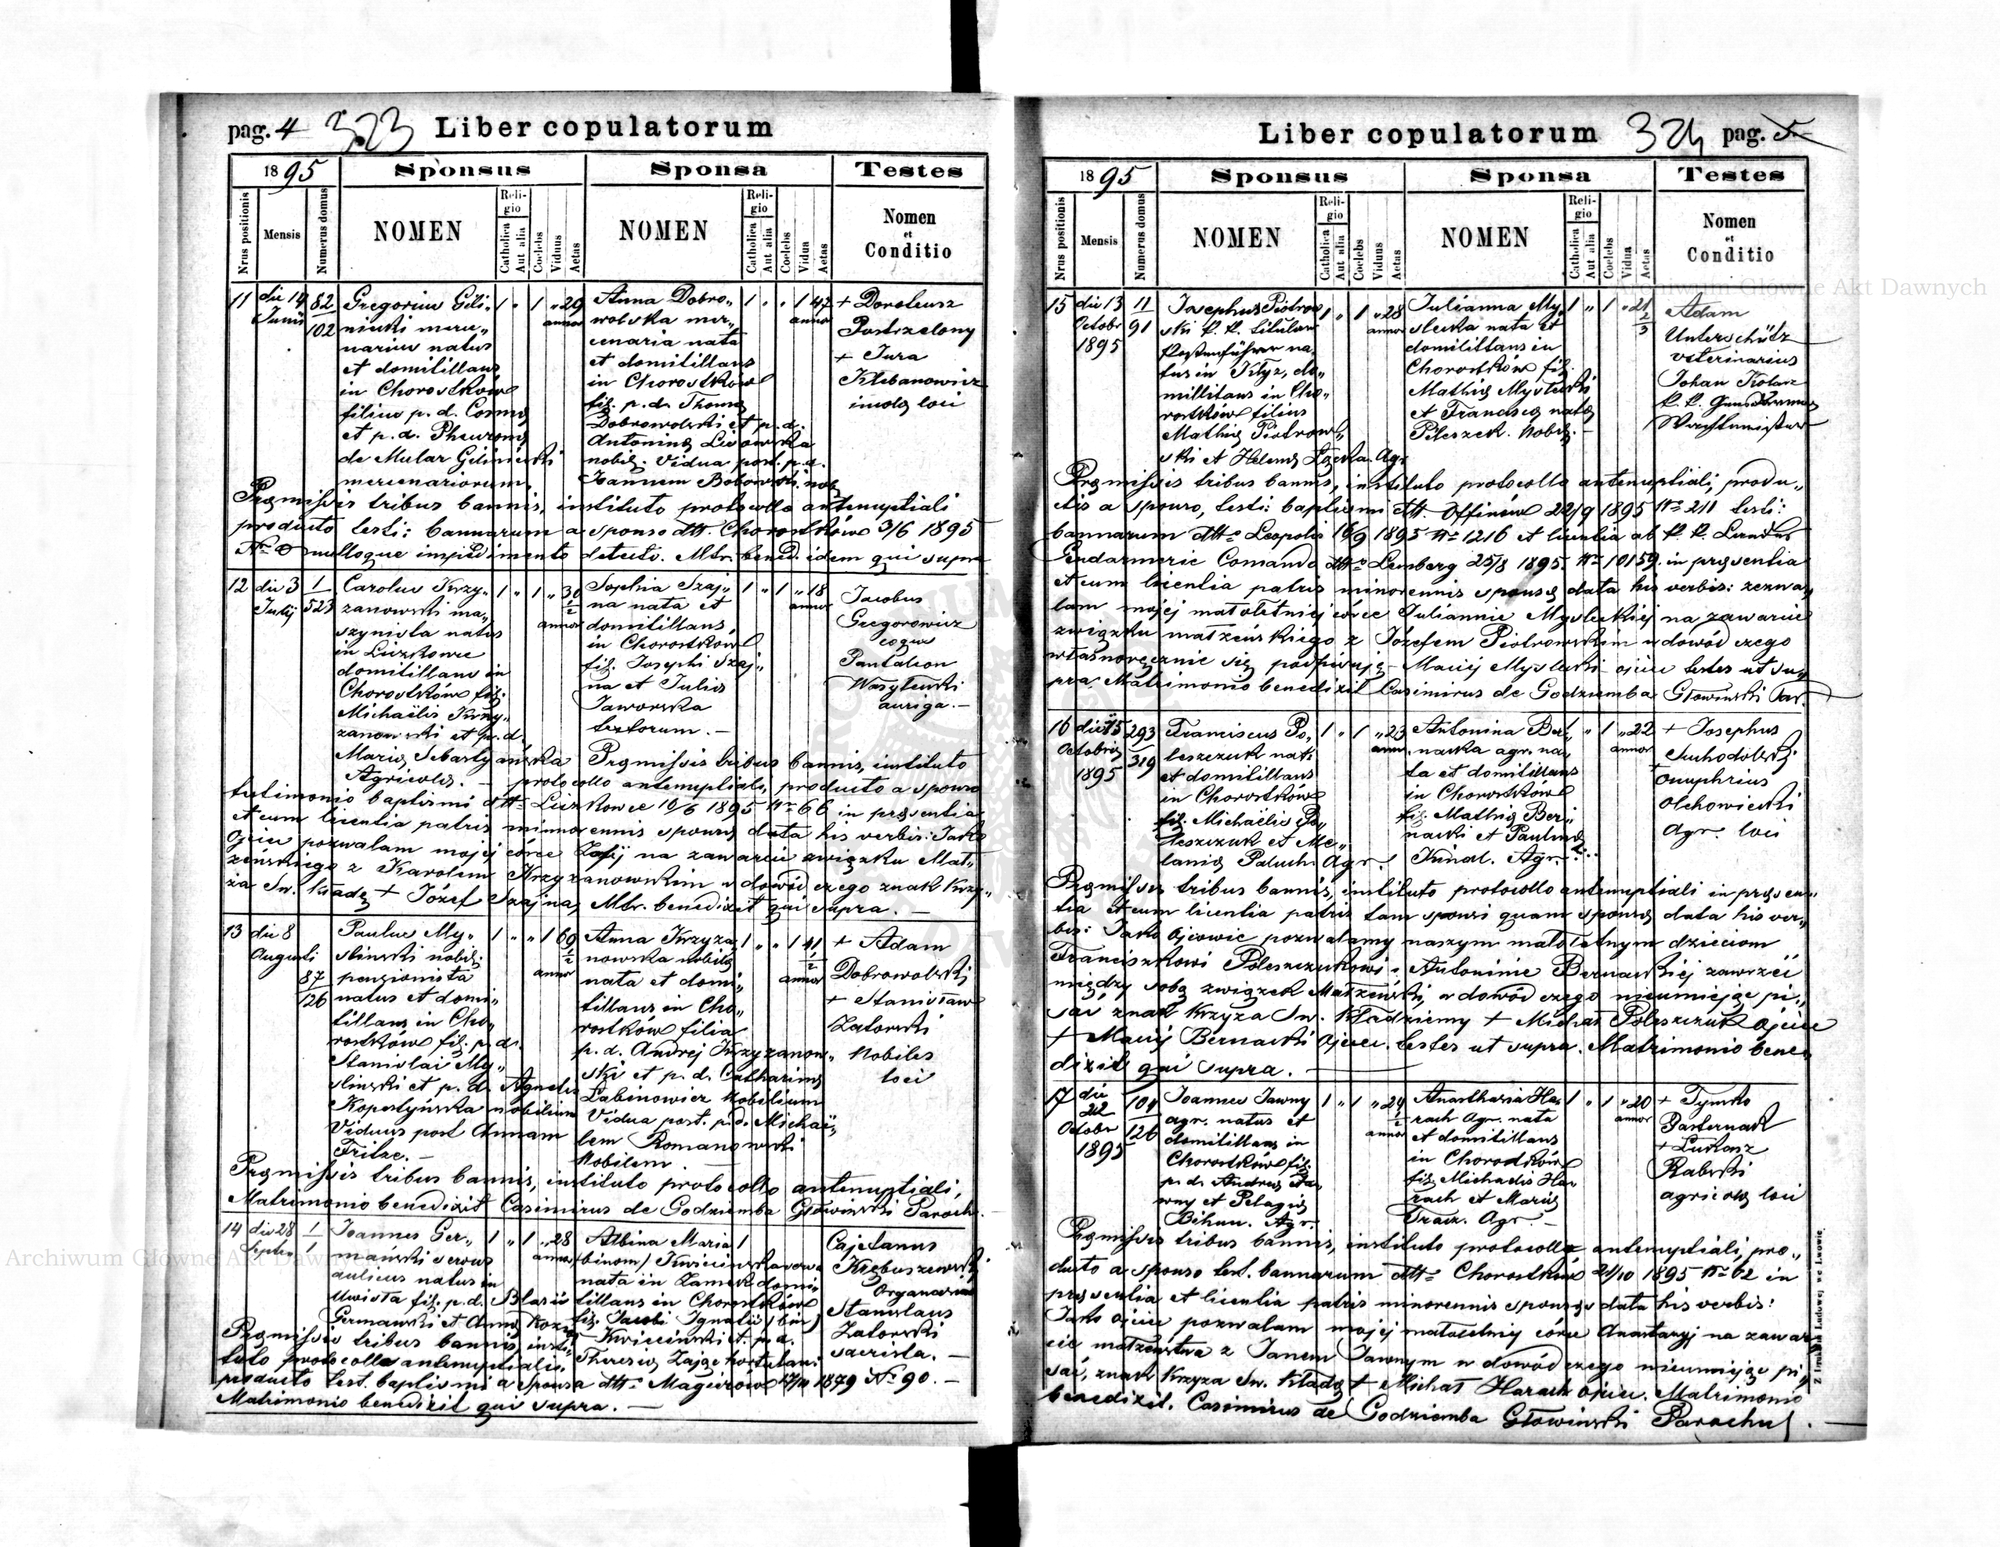 pag. 4 323 Liber copulatorum
1895 Sponsus Sponsa Testes
Nrus positionis Mensis Numerus domus NOMEN Religio Catholica Aut alia Coelebs Viduus Aetas NOMEN Religio Catholica Aut alia Coelebs Vidua Aetas Nomen et Conditio
11 die 14 Junii 82 102
Gregorius
merce„
narius natus
et domicilians
in Chorostków
filius p. d. Cosmæ
et p. d.
de Mular
mercenariorum.
1 „ 1 „ 29 annor
Anna Dobro„
wolska mer„
cenaria nata
et domicilians
in Chorostków
fil. p. d. Thomæ
Dobrowolski et p. d.
Antoninæ Lisowska
nobil. Vidua post. p. d.
Joannem Bobowski nob.
1 „ „ 1 47 annor
+ Doroteusz
Postrzelony
+ Jura
Klebanowicz
incolæ loci
Præmissis tribus bannis, instituto protocollo antenuptiali
producto testi: bannorum a sponso dtt. Chorostków 3/6 1895
nulloque impedimento detecto. Mtr. bened. idem qui supra
12 die 3 Julij 1 523
Carolus Krzy„
zanowski ma„
szynista natus
in Liczkowce
domicilians in
Chorostków fil.
Michaëlis Krzy„
zanowski et p. d.
Agricolæ. —
1 „ 1 „ 30 1/2 annor
Sophia Szaj„
na nata et
domicilians
in Chorostków
fil. Josephi Szaj„
na et Juliæ
Jaworska
textorum. —
1 „ 1 „ 18 annor
Jacobus
Gregorowicz
Pantaleon
Wasylewski
auriga. —
Præmissis tribus bannis, instituto
protocollo antenuptiali, producto a sponso
testimonio baptismi dtto Liczkowce 10/6 1895 No 66 in præsentia
et cum licentia patris minorennis sponsæ data his verbis: Jako
Ojciec pozwalam mojej córce Zofij na zawarcie związku Mał„
żeńskiego z Karolem Krzyżanowskim w dowód czego znak Krzy„
ża Sw. kładę + Józef Szajna, Mtr. benedixit qui supra. —
13 die 8 Augusti 87 126
Paulus My„
sliński nobil.
pensionista
natus et domi„
cilians in Cho„
rostków fil. p. d.
Stanislai My„
sliński et p. d. Agnetis
Kopestyńska nobilium
Viduus post Annam
1 „ „ 1 69 1/2 annor
Anna Krzyża„
nowska nobilis
nata et domi„
cilians in Cho„
rostków filia
p. d. Andrej Krzyzanow„
ski et p. d. Catharinæ
Labinowicz Nobilium
Vidua post. p. d. Michaë„
lem Romanowski
Nobilem
1 „ „ 1 41 1/2 annor
+ Adam
Dobrowolski
+ Stanisław
Zatorski
Nobiles
loci
Præmissis tribus bannis, instituto protocollo antenuptiali,
Matrimonio benedixit Casimirus de Godziemba Głowiński Paroch.
14 die 28 Septem 1 1
Joannes Ger„
mański servus
aulicus natus in
Uwisla fil. p. d. Blasii
Germański et Annæ
1 „ 1 „ 28 annor
Albina Maria
binom/ Kwiecińska serva
nata in Zamek domi„
cilians in Chorostków
fil. Jacobi Ignatii (bin)
Kwieciński et p. d.
Theresiæ Zając hortulani
1
Cajetanus
Kiebuszewski
Organarius
Stanislaus
Zatorski
sacrista. —
Præmissis tribus bannis insti„
tuto protocollo antenuptiali
producto test. baptismi a sponsa dtto Magierów 1879 No 90. —
Matrimonio benedixit qui supra. —
Liber copulatorum 324 pag. 5
1895 Sponsus Sponsa Testes
Nrus positionis Mensis Numerus domus NOMEN Religio Catholica Aut alia Coelebs Viduus Aetas NOMEN Religio Catholica Aut alia Coelebs Vidua Aetas Nomen et Conditio
15 die 13 Octobr 1895 11 91
Josephus Piotrow„
ski k. k. titular
Postenführer na„
tus in do„
micilians in Cho„
rostków filius
Mathiæ Piotrow„
ski et Helenæ Agr.
1 „ 1 „ 28 annor
Julianna My„
slecka nata et
domicilians in
Chorostków fil.
Mathiæ Myslecki
et Franciscæ nata
Peleszek. Nobil. —
1 „ 1 „ 21 2/3
Adam
Unterschütz
veterinarius
Johan Kolarz
k. k. Gensdarmerie
Wachtmeister
Præmissis tribus bannis, instituto protocollo antenuptiali, produ„
ctis a sponso, testi: baptismi dtt. 22/9 1895 No 211 testi:
bannorum dtto Leopolis 16/9 1895 No 1216 et licentia ab k. k. Landes
Gendarmerie Comando dtto Lemberg 25/8 1895 No 10159. in præsentia
et cum licentia patris minorennis sponsæ data his verbis: zezwa„
lam mojej małoletniej córce Juliannie Mysleckiej na zawarcie
związku małżeńskiego z Józefem Piotrowskim w dowód czego
własnoręcznie się podpisuję — Maciej Myslecki ojciec testes ut su„
pra. Matrimonio benedixit Casimirus de Godziemba Głowiński Par.
16 die 15 Octobris 1895 293 319
Franciscus Po„
leszczuk nat.
et domicilians
in Chorostków
fil. Michaëlis Po„
leszczuk et Me„
laniæ Paluch. Agr.
1 „ 1 „ 23 annor.
Antonina Ber„
nacka agr. na„
ta et domicilians
in Chorostków
fil. Mathiæ Ber„
nacki et Paulinæ
Agr.
1 „ 1 „ 22 annor
+ Josephus
Suchodolski
+ Onuphrius
Olchowiecki
Agr. loci
Præmissis tribus bannis, instituto protocollo antenuptiali in præsen„
tia et cum licentia patris tam sponsi quam sponsæ data his ver„
bis: Jako Ojcowie pozwalamy naszym małoletnym dzieciom
Franciszkowi Poleszczukowi i Antoninie Bernackiej zawrzeć
między sobą związek Małżeński, w dowód czego nieumiejąc pi„
sać znak Krzyża Sw. kładziemy + Michał Poleszczuk ojciec
+ Maciej Bernacki Ojciec. testes ut supra. Matrimonio bene„
dixit qui supra. —
17 die 22 Octobr 1895 104 126
Joannes Jawny
agr. natus et
domicilians in
Chorostków fil.
p. d. Andreæ Ja„
wny et Pelagiæ
Bihun. Agr.
1 „ 1 „ 24 1/2 annor
Anastasia Ha„
rach Agr. nata
et domicilians
in Chorostków
fil. Michaelis Ha„
rach et Mariæ
Tracz. Agr. —
1 „ 1 „ 20 annor
+ Tymko
Pasternak
+ Łukasz
Rabski
agricolæ loci
Præmissis tribus bannis, instituto protocollo antenuptiali, pro„
ducto a sponso test. bannorum dtto Chorostków 21/10 1895 No 62 in
præsentia et licentia patris minorennis sponsæ data his verbis:
Jako ojciec pozwalam mojej małoletniej córce Anastazyj na zawar„
cie małżeństwa z Janem Jawnym w dowód czego nieumiejąc pi„
sać, znak Krzyża Sw. kładę + Michał Harach ojciec. Matrimonio
benedixit. Casimirus de Godziemba Głowiński Parochus. —
Z drukarni Ludowej we Lwowie.
Archiwum Główne Akt Dawnych
Archiwum Główne Akt Dawnych